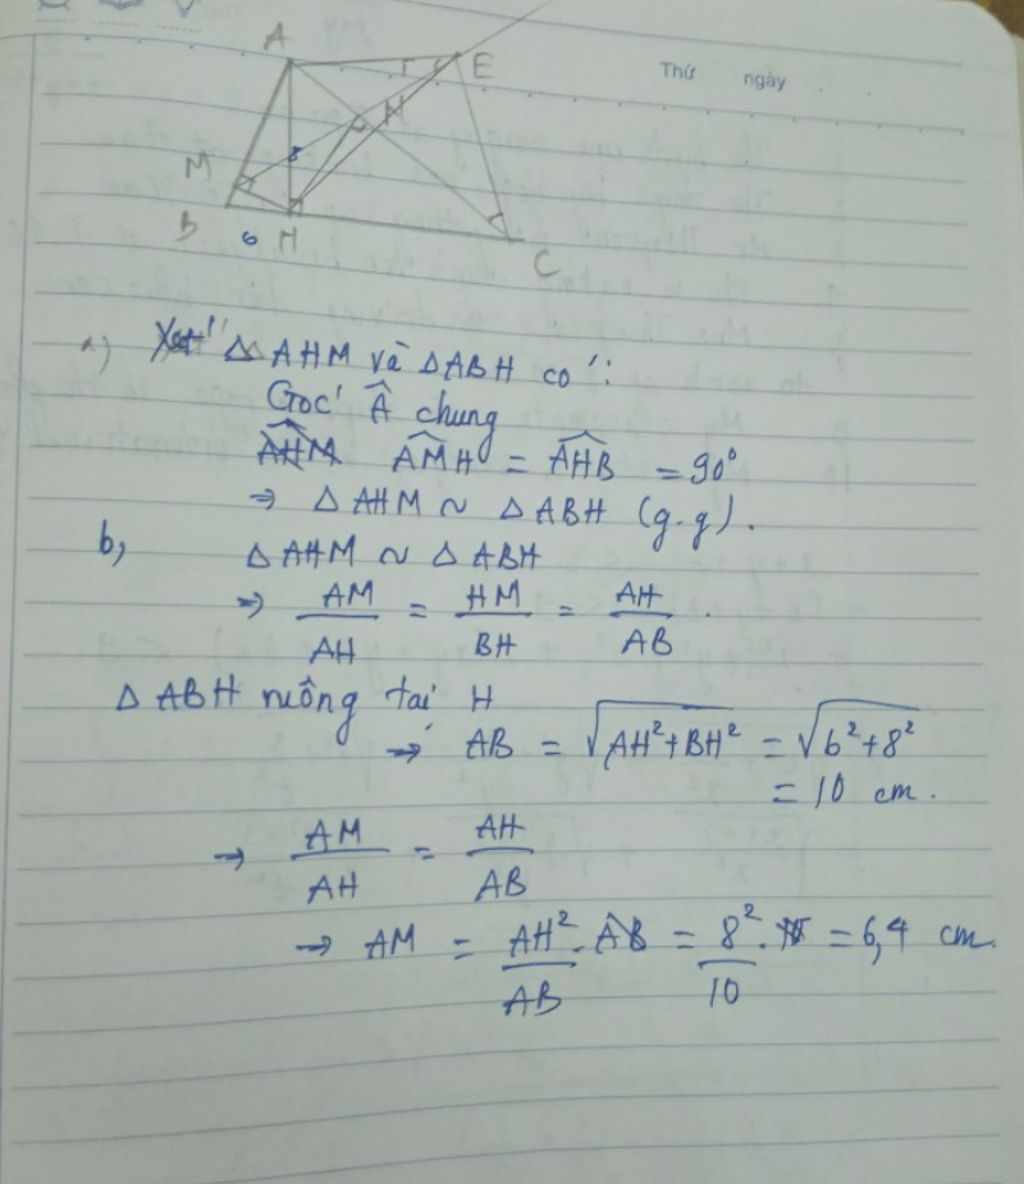 Thứ ngày
A
E
N
M
8
B 6 H
C
a) Xét △ AHM và △ABH có:
Góc Â chung
AHM AMH = AHB = 90°
⇒ △ AHM ~ △ ABH (g.g).
b, △ AHM ~ △ ABH
⇒ AM/AH = HM/BH = AH/AB.
△ ABH vuông tại H
⇒ AB = √AH²+BH² = √6²+8²
= 10 cm.
⇒ AM/AH = AH/AB
⇒ AM = AH²/AB . AB = 8²/10 . = 6,4 cm.